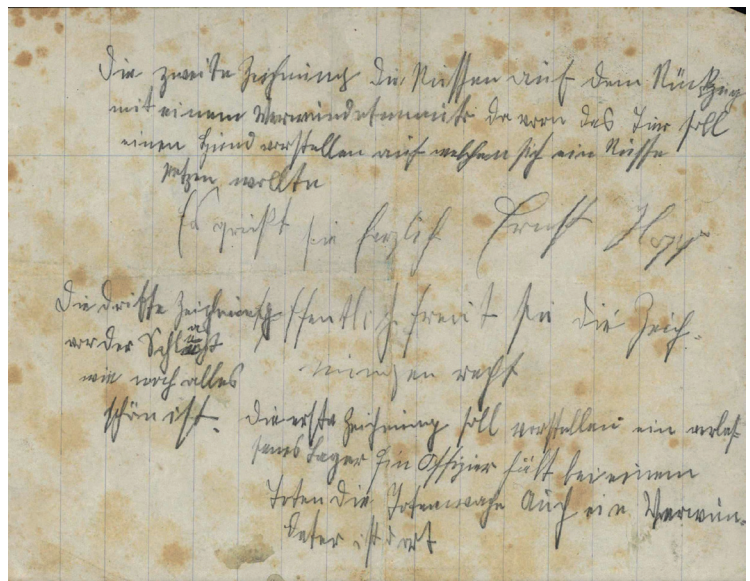 Die zweite Zeichnung die Russen auf dem Rückzug
mit einem da vorn das Tier soll
einen Hund vorstellen auf welchen sich ein Russe
setzen wollte
Es grüßt sie herzlich Ernst
Hoffentlich freut sie die Zeich-
nungen recht
Die dritte Zeichnung
vor der Schlacht
wie noch alles
schön ist.
Die erste Zeichnung soll vorstellen ein verlas-
senes Lager Ein Offizier hält bei einem
Toten die Totenwache Auch ein Verwun-
deter ist dort